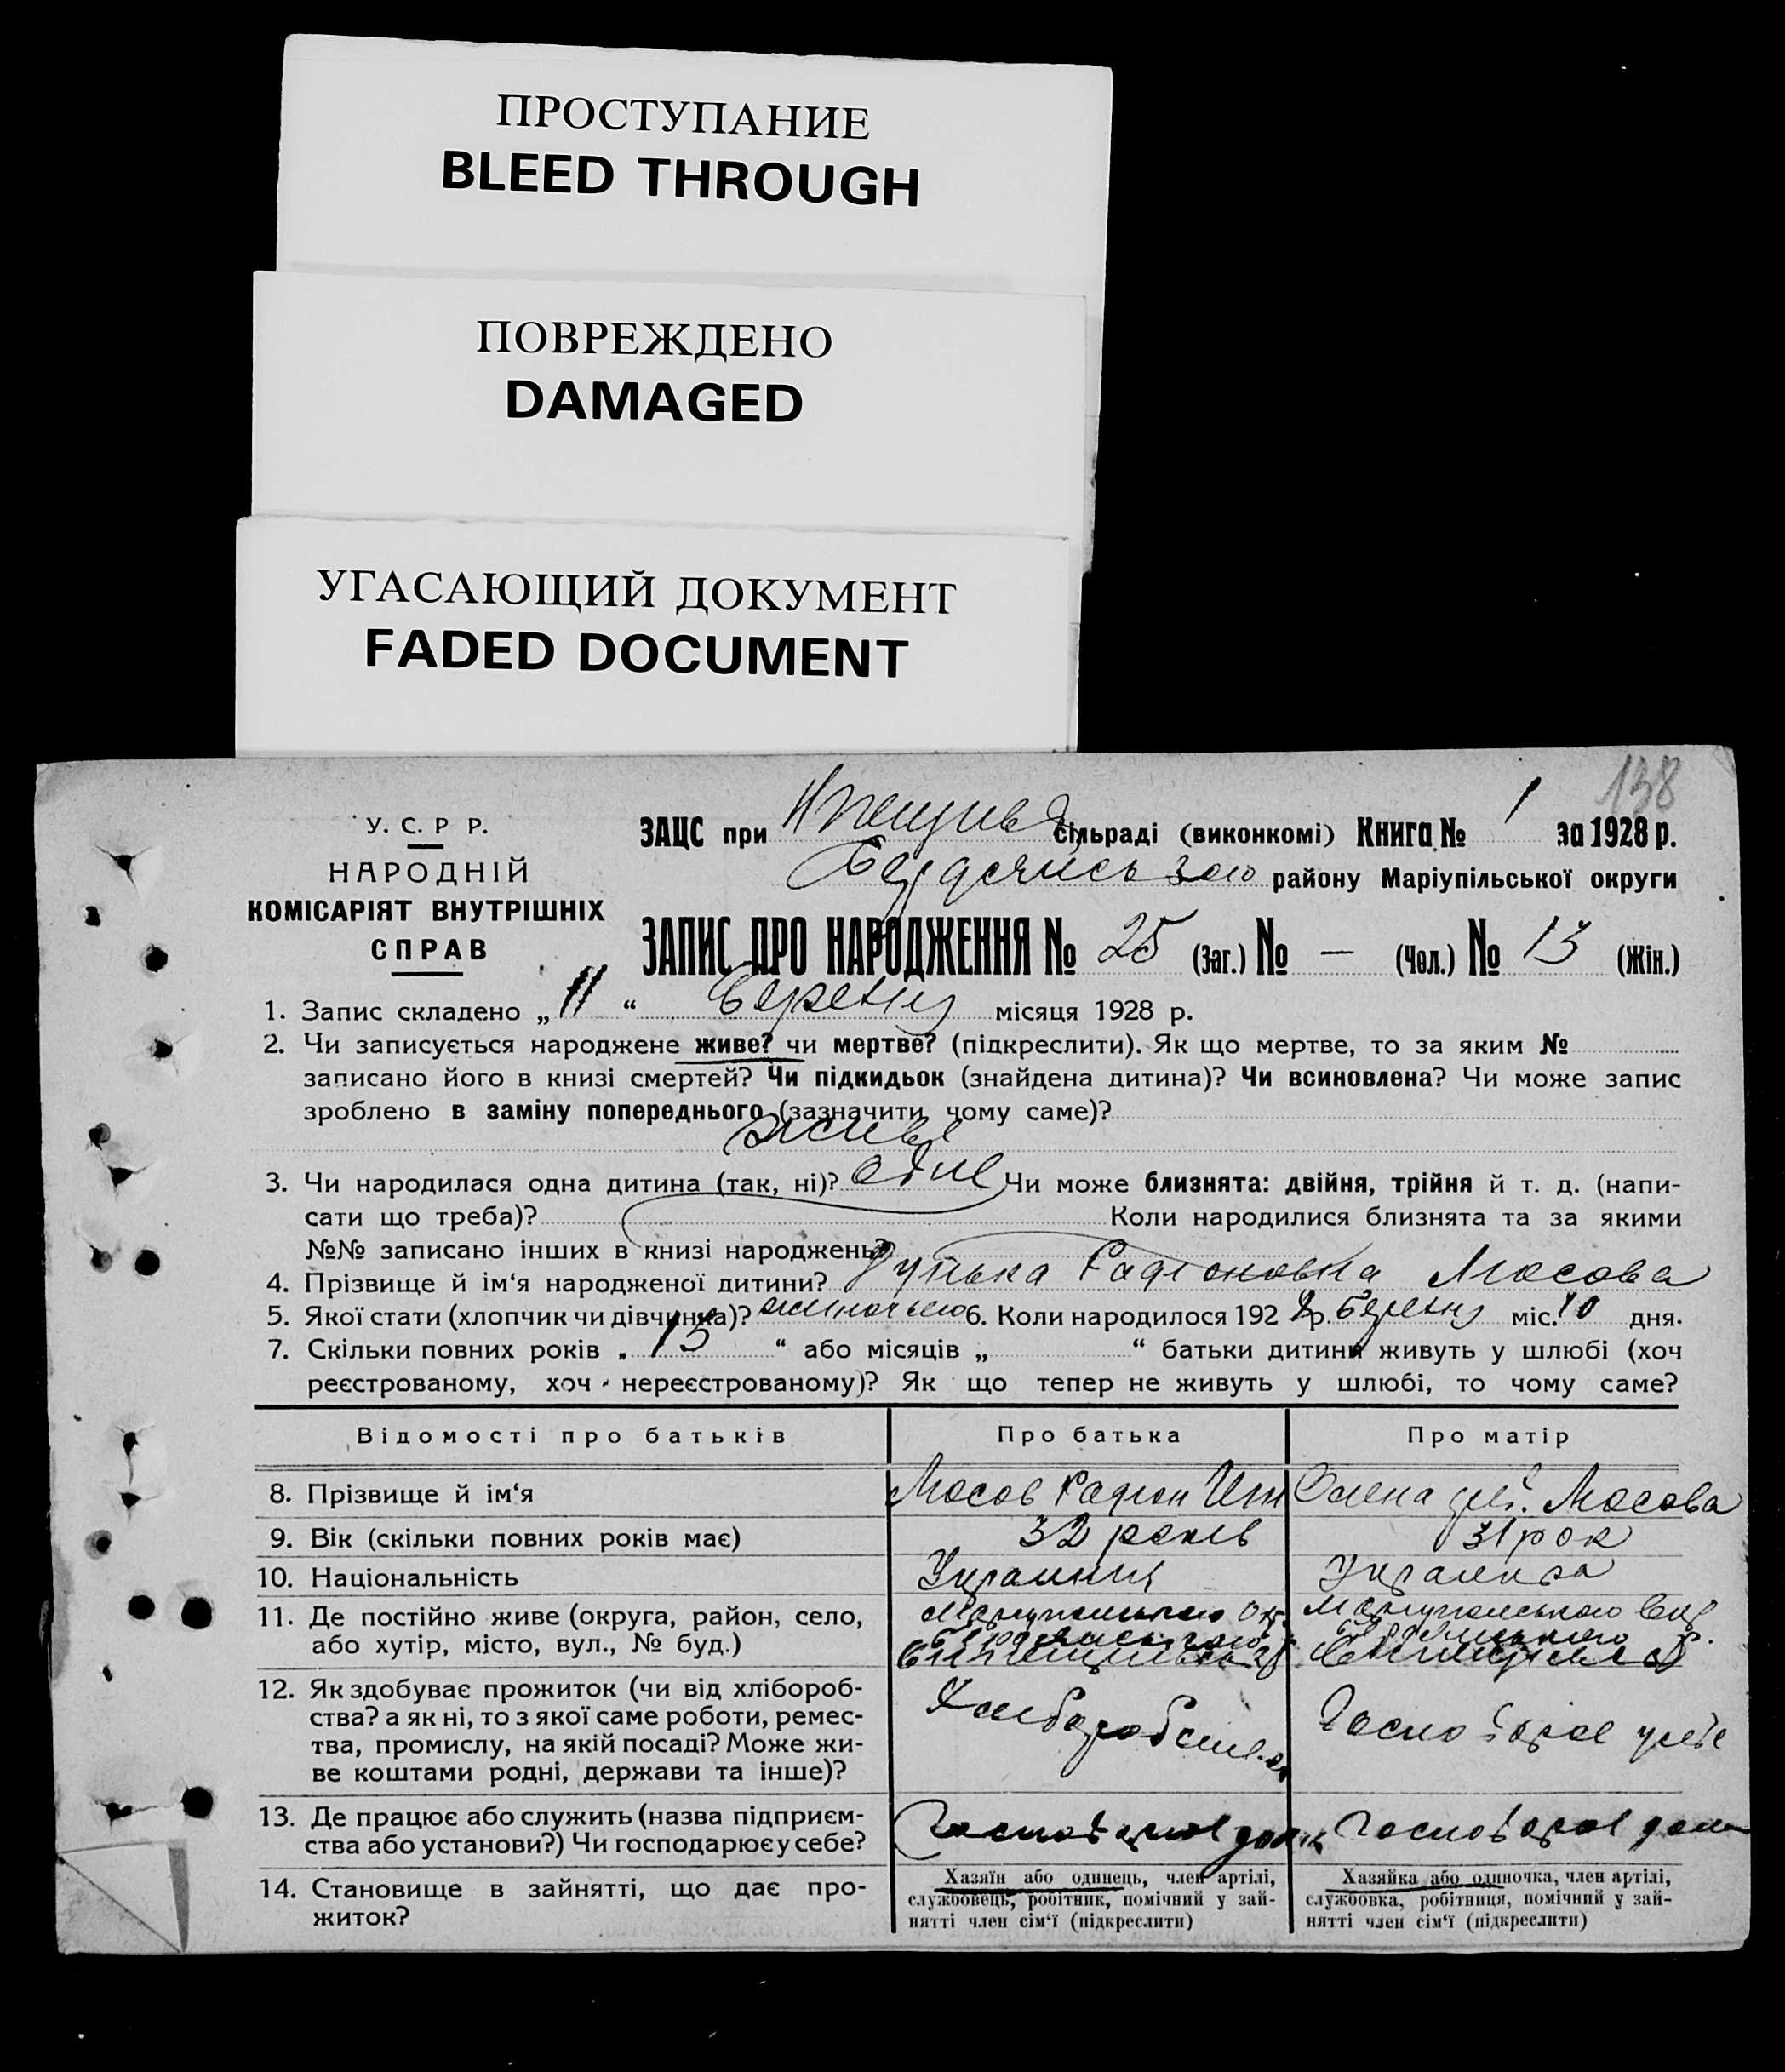 ПРОСТУПАНИЕ
BLEED THROUGH
ПОВРЕЖДЕНО
DAMAGED
УГАСАЮЩИЙ ДОКУМЕНТ
FADED DOCUMENT
138
У. С. Р Р.
НАРОДНІЙ
КОМІСАРІЯТ ВНУТРІШНІХ
СПРАВ
ЗАЦС при сільраді (виконкомі) Книга № 1 за 1928 р.
району Маріупільської округи
ЗАПИС ПРО НАРОДЖЕННЯ № 25 (Заг.) № — (Чол.) № 13 (Жін.)
1. Запис складено „ 11 “ березня місяця 1928 р.
2. Чи записується народжене живе? чи мертве? (підкреслити). Як що мертве, то за яким №
записано його в книзі смертей? Чи підкидьок (знайдена дитина)? Чи всиновлена? Чи може запис
зроблено в заміну попереднього (зазначити чому саме)?
живе
3. Чи народилася одна дитина (так, ні)? одне Чи може близнята: двійня, трійня й т. д. (напи-
сати що треба)? Коли народилися близнята та за якими
№№ записано інших в книзі народжень?
4. Прізвище й ім‘я народженої дитини? Радіоновна Мосова
5. Якої стати (хлопчик чи дівчинка)? 6. Коли народилося 192 8 р. березня міс. 10 дня.
7. Скільки повних років „ 15 “ або місяців „ “ батьки дитини живуть у шлюбі (хоч
реєстрованому, хоч нереєстрованому)? Як що тепер не живуть у шлюбі, то чому саме?
Відомості про батьків Про батька Про матір
8. Прізвище й ім‘я Мосов Радіон Олена Мосова
9. Вік (скільки повних років має) 32 років 31 рок
10. Національність Украинец Украинка
11. Де постійно живе (округа, район, село,
або хутір, місто, вул., № буд.)
12. Як здобуває прожиток (чи від хлібороб-
ства? а як ні, то з якої саме роботи, ремес-
тва, промислу, на якій посаді? Може жи-
ве коштами родні, держави та інше)?
13. Де працює або служить (назва підприєм-
ства або установи?) Чи господарює у себе?
14. Становище в зайнятті, що дає про-
житок?
Хазяїн або одинець, член артілі,
службовець, робітник, помічний у зай-
нятті член сім‘ї (підкреслити)
Хазяйка або одиночка, член артілі,
службовка, робітниця, помічний у зай-
нятті член сім‘ї (підкреслити)